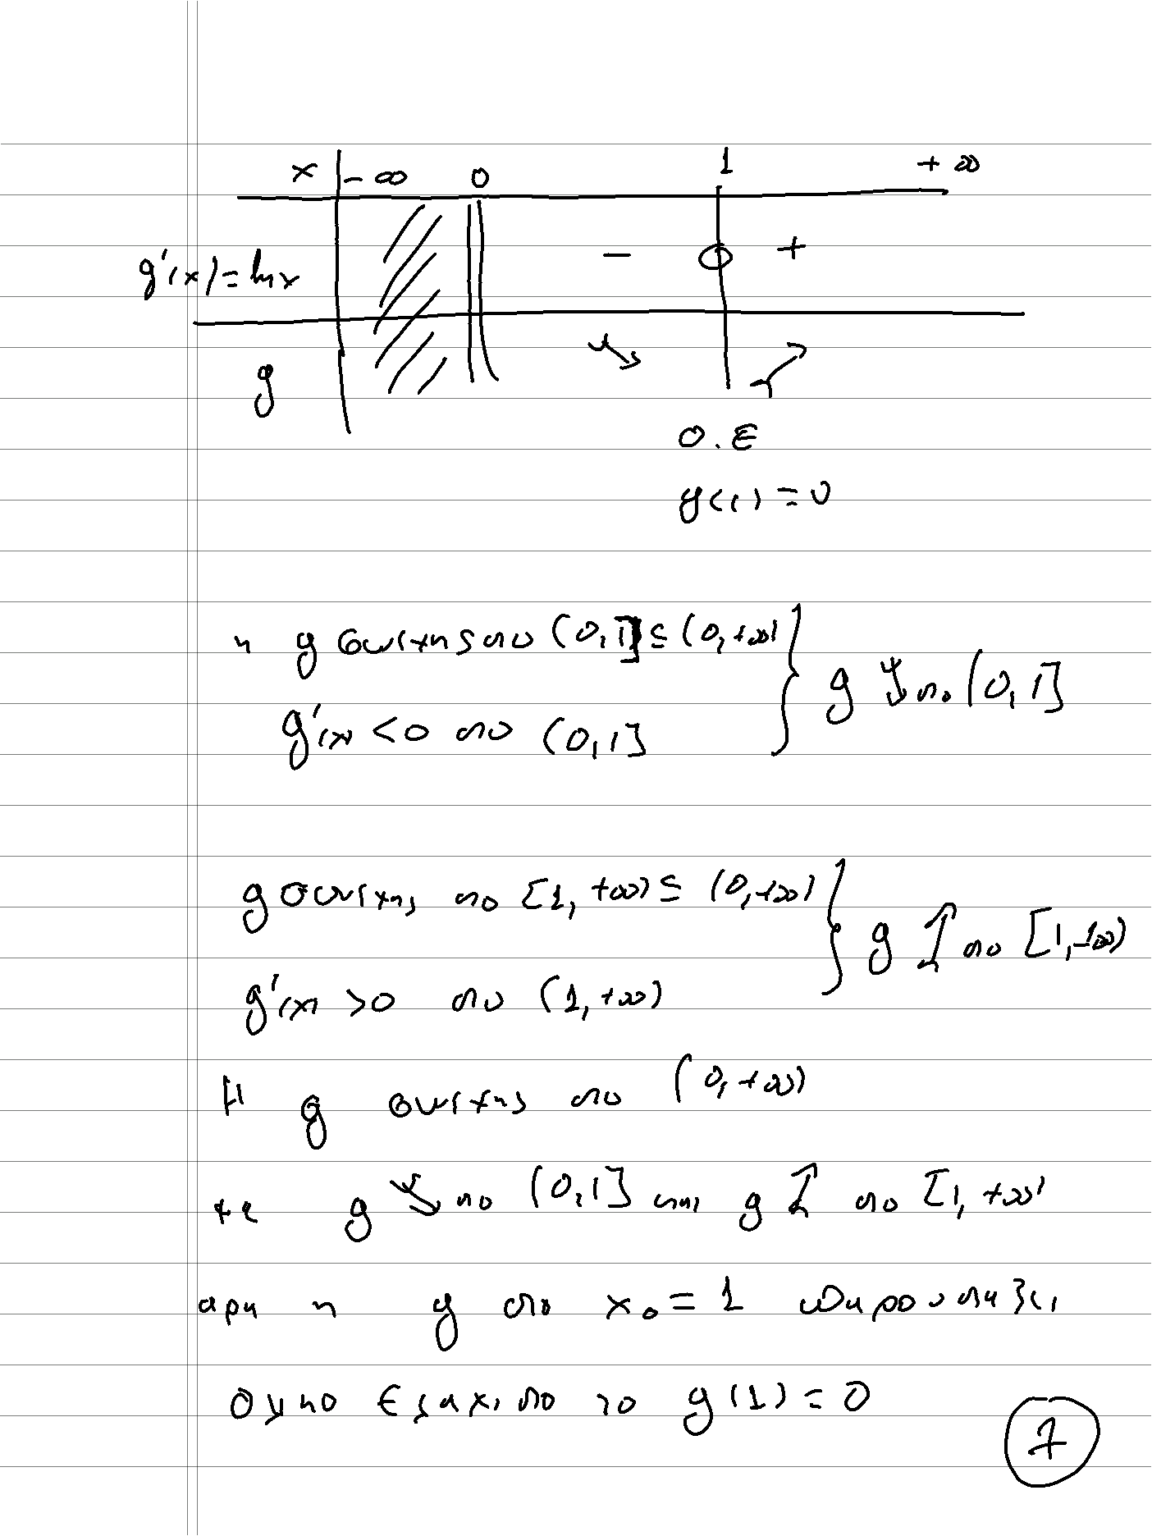 x -∞ 0 1 +∞
g'(x)=lnx - +
g ↘ ↗
Ο.Ε
g(1)=0
η g συνεχης στο (0,1]⊆(0,+∞) } g ↓ στο (0,1]
g'(x)<0 στο (0,1]
g συνεχης στο [1,+∞)⊆(0,+∞) } g ↑ στο [1,+∞)
g'(x)>0 στο (1,+∞)
Η g συνεχης στο (0,+∞)
με g ↓ στο (0,1] και g ↑ στο [1,+∞)
αρα η g στο x₀=1 παρουσιαζει
ολικο ελαχιστο το g(1)=0
7